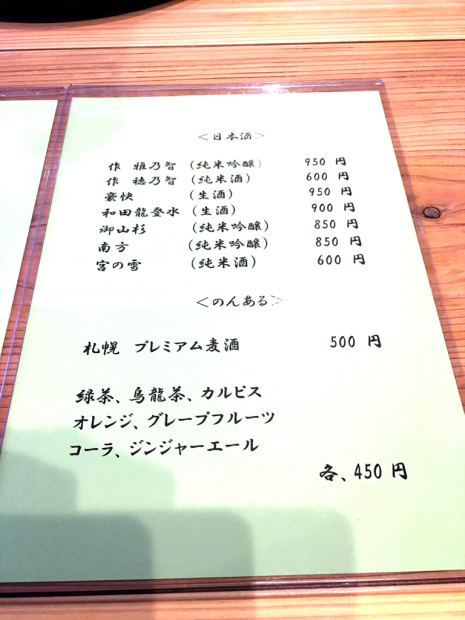 ＜日本酒＞
作 雅乃智 (純米吟醸) 950 円
作 穂乃智 (純米酒) 600 円
豪快 (生酒) 950 円
和田龍登水 (生酒) 900 円
御山杉 (純米吟醸) 850 円
南方 (純米吟醸) 850 円
宮の雪 (純米酒) 600 円
＜のんある＞
札幌 プレミアム麦酒 500 円
緑茶、烏龍茶、カルピス
オレンジ、グレープフルーツ
コーラ、ジンジャーエール
各、450 円